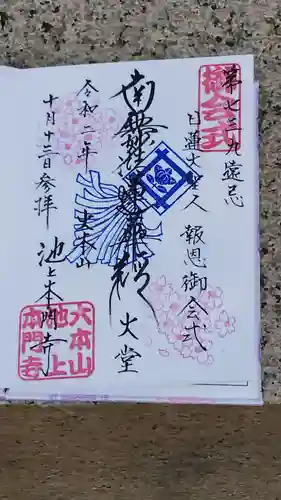 第七三九遠忌
御会式
日蓮大聖人 報恩御会式
南無妙法蓮華経
大堂
大本山
令和二年
十月十三日参拝
池上本門寺
大本山
池上
本門寺